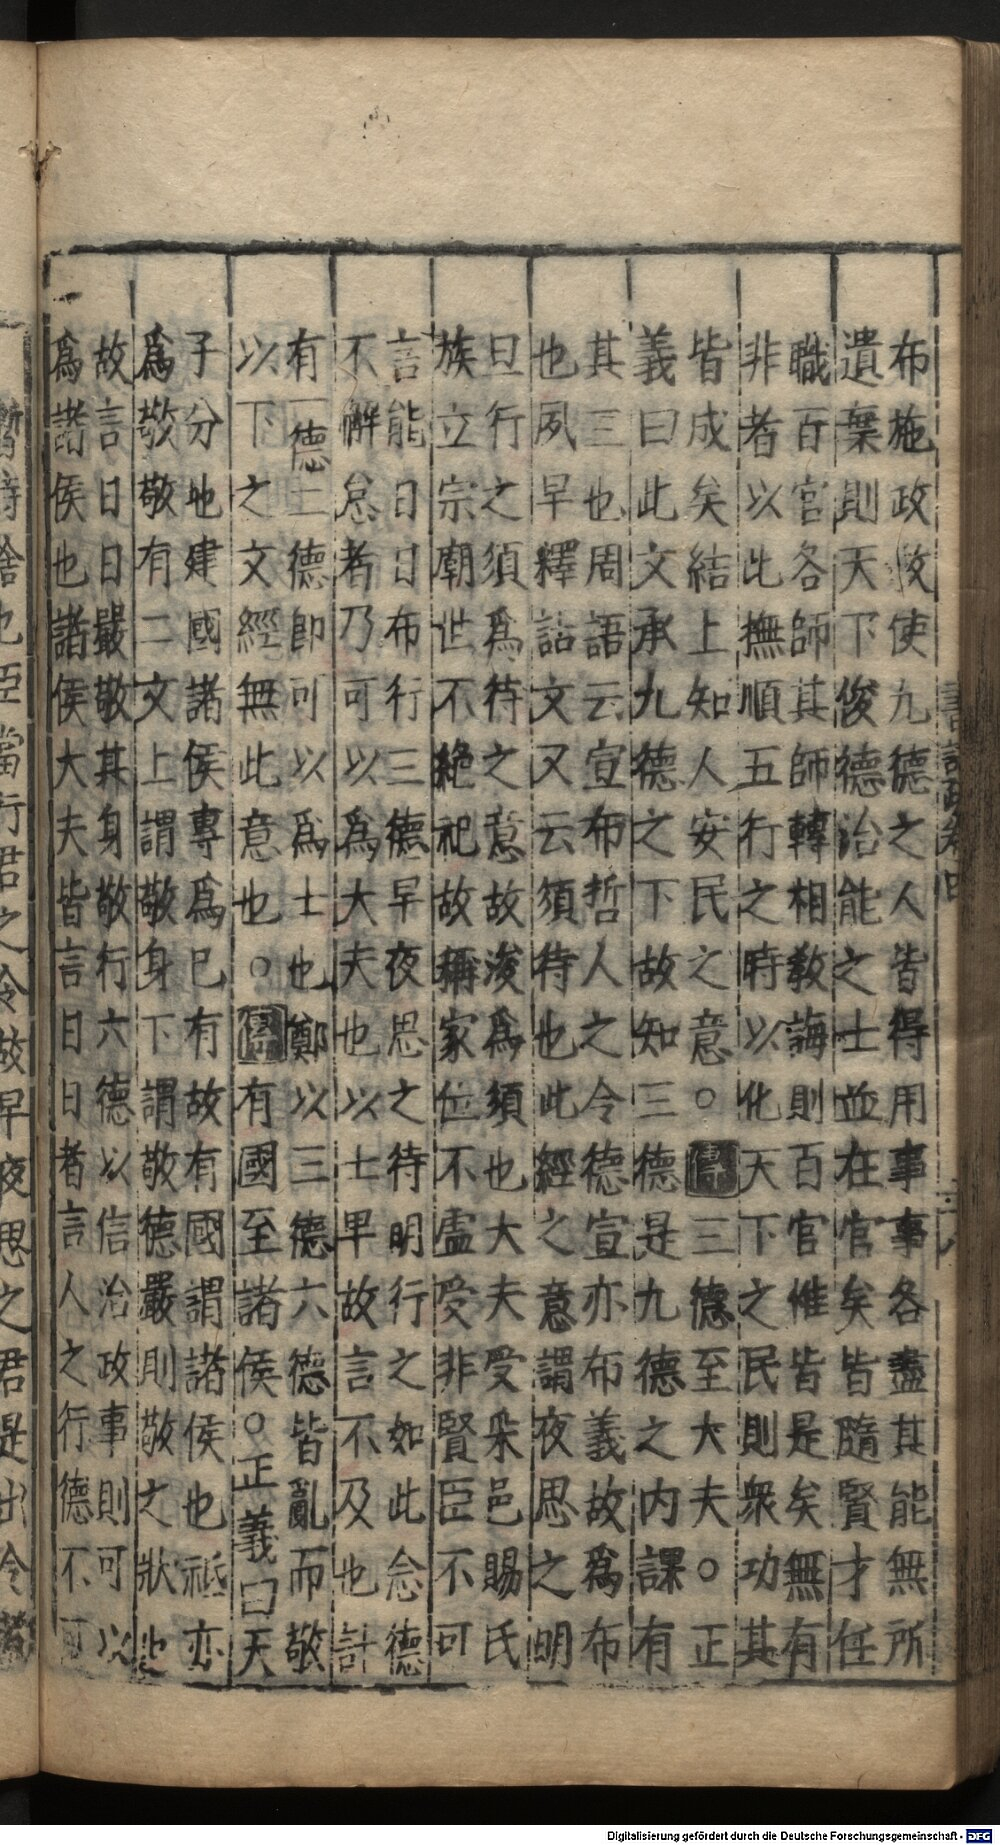 書註疏卷四
布施政教使九德之人皆得用事事各盡其能無所
遺棄則天下俊德治能之士並在官矣皆隨賢才任
職百官各師其師轉相教誨則百官惟皆是矣無有
非者以此撫順五行之時以化天下之民則衆功其
皆成矣結上知人安民之意○傳三德至大夫○正
義曰此文承九德之下故知三德是九德之内課有
其三也周語云宣布哲人之令德宣亦布義故爲布
也夙早釋詁文又云須待也此經之意謂夜思之明
旦行之須爲待之意故浚爲須也大夫受采邑賜氏
族立宗廟世不絶祀故稱家位不虛受非賢臣不可
言能日日布行三德早夜思之待明行之如此念德
不懈怠者乃可以爲大夫也以士卑故言不及也計
有一德二德即可以爲士也鄭以三德六德皆亂而敬
以下之文經無此意也○傳有國至諸侯○正義曰天
子分地建國諸侯專爲己有故有國謂諸侯也祗亦
爲敬敬有二文上謂敬身下謂敬德嚴則敬之狀也
故言日日嚴敬其身敬行六德以信治政事則可以
爲諸侯也諸侯大夫皆言日日者言人之行德不可
暫時舍也臣當行君之令故早夜思之君是出令者
Digitalisierung gefördert durch die Deutsche Forschungsgemeinschaft - DFG